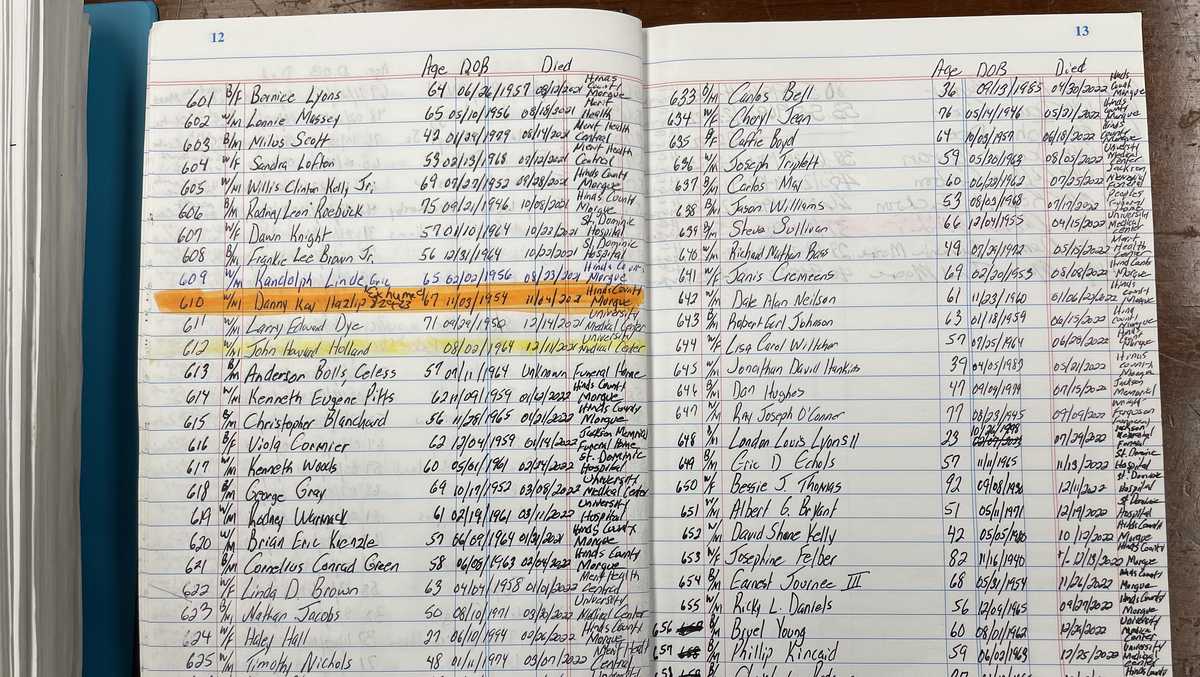 12
Age DOB Died
601 B/F Bernice Lyons 64 06/26/1957 08/12/2021 Hinds County Morgue
602 W/M Lonnie Massey 65 05/10/1956 08/18/2021 Merit Health
603 B/M Milus Scott 42 01/29/1979 08/14/2021 Merit Health Central
604 W/F Sandra Lofton 53 02/13/1968 09/12/2021 Merit Health Central
605 W/M Willis Clinton Kelly Jr. 69 07/27/1952 09/28/2021 Hinds County Morgue
606 B/M Rodney Leon Roebuck 75 09/21/1946 10/08/2021 Hinds County Morgue
607 W/F Dawn Knight 57 01/10/1964 10/22/2021 St. Dominic Hospital
608 B/M Frankie Lee Brown Jr. 56 12/31/1964 10/22/2021 St. Dominic Hospital
609 W/M Randolph Linde 65 02/02/1956 08/23/2021 Hinds County Morgue
610 W/M Danny Kay Hazlip Exhumed 67 11/03/1954 11/04/2021 Hinds County Morgue
611 W/M Larry Edward Dye 71 09/29/1950 12/14/2021 University Medical Center
612 W/M John Howard Holland 08/02/1964 12/11/2021 University Medical Center
613 B/M Anderson Bolls, Celess 57 07/11/1964 Unknown Funeral Home
614 W/M Kenneth Eugene Pitts 62 11/09/1959 01/12/2022 Hinds County Morgue
615 B/M Christopher Blanchard 56 11/28/1965 01/21/2022 Hinds County Morgue
616 B/F Viola Cormier 62 12/04/1959 01/14/2022 Jackson Memorial Funeral Home
617 W/M Kenneth Woods 60 05/01/1961 02/24/2022 St. Dominic Hospital
618 B/M George Gray 69 10/17/1952 03/08/2022 University Medical Center
619 W/M Rodney Warnack 61 02/19/1961 03/11/2022 University Hospital
620 W/M Brian Eric Kienzle 57 06/09/1964 01/31/2021 Hinds County Morgue
621 B/M Cornelius Conrad Green 58 06/08/1963 02/04/2022 Hinds County Morgue
622 W/F Linda D. Brown 63 04/04/1958 01/01/2022 Merit Health Central
623 B/M Nathan Jacobs 50 08/10/1971 03/30/2022 University Medical Center
624 W/F Haley Hall 27 06/10/1994 02/26/2022 Hinds County Morgue
625 W/M Timothy Nichols 48 01/11/1974 03/07/2022 Merit Health Central
13
Age DOB Died
633 B/M Carlos Bell 36 09/13/1985 04/30/2022 Hinds County Morgue
634 W/F Cheryl Jean 76 05/14/1946 05/21/2022 Hinds County Morgue
635 B/F Caffie Boyd 64 10/03/1957 06/18/2022 Hinds County Morgue
636 W/M Joseph Triplett 59 05/20/1963 08/05/2022 University Medical Center
637 B/M Carlos May 60 06/22/1962 07/25/2022 Jackson Memorial Funeral
638 B/M Jason Williams 53 08/03/1968 07/17/2022 Peoples Funeral Home
639 B/M Steve Sullivan 66 12/04/1955 04/15/2022 University Medical Center
640 W/M Richard Nathan Bass 49 07/29/1972 05/15/2022 Merit Health Center
641 W/F Janis Cremeens 69 02/20/1953 05/09/2022 Hinds County Morgue
642 W/M Dale Alan Neilson 61 11/23/1960 01/06/2022 Hinds County Morgue
643 B/M Robert Earl Johnson 63 01/18/1959 06/15/2022 Hinds County Morgue
644 W/F Lisa Carol Willthur 57 07/25/1964 06/28/2022 Hinds County Morgue
645 W/M Jonathan David Hankins 39 04/05/1983 05/21/2022 Hinds County Morgue
646 B/M Don Hughes 47 09/09/1974 07/15/2022 Jackson Memorial
647 W/M Ray Joseph O'Conner 77 08/23/1945 09/09/2022 Wright Ferguson Funeral
648 B/M London Louis Lyons II 23 10/26/1998 07/29/2022 Jackson Memorial Funeral
649 B/M Eric D Echols 57 11/11/1965 11/13/2022 St. Dominic Hospital
650 W/F Bessie J. Thomas 92 09/08/1930 12/11/2022 St. Dominic Hospital
651 B/M Albert G. Bryant 51 05/11/1971 12/19/2022 St Dominic Hospital
652 W/M David Shane Kelly 42 05/05/1980 10/12/2022 Hinds County Morgue
653 W/F Josephine Felber 82 11/16/1940 +/- 12/13/2022 Hinds County Morgue
654 B/M Earnest Journee III 68 05/31/1954 11/26/2022 Hinds County Morgue
655 W/M Ricky L. Daniels 56 12/09/1965 09/27/2022 Hinds County Morgue
656 B/M Bryel Young 60 08/01/1962 12/24/2022 University Medical Center
657 B/M Phillip Kincaid 59 06/02/1963 12/25/2022 University Medical Center
Hinds County